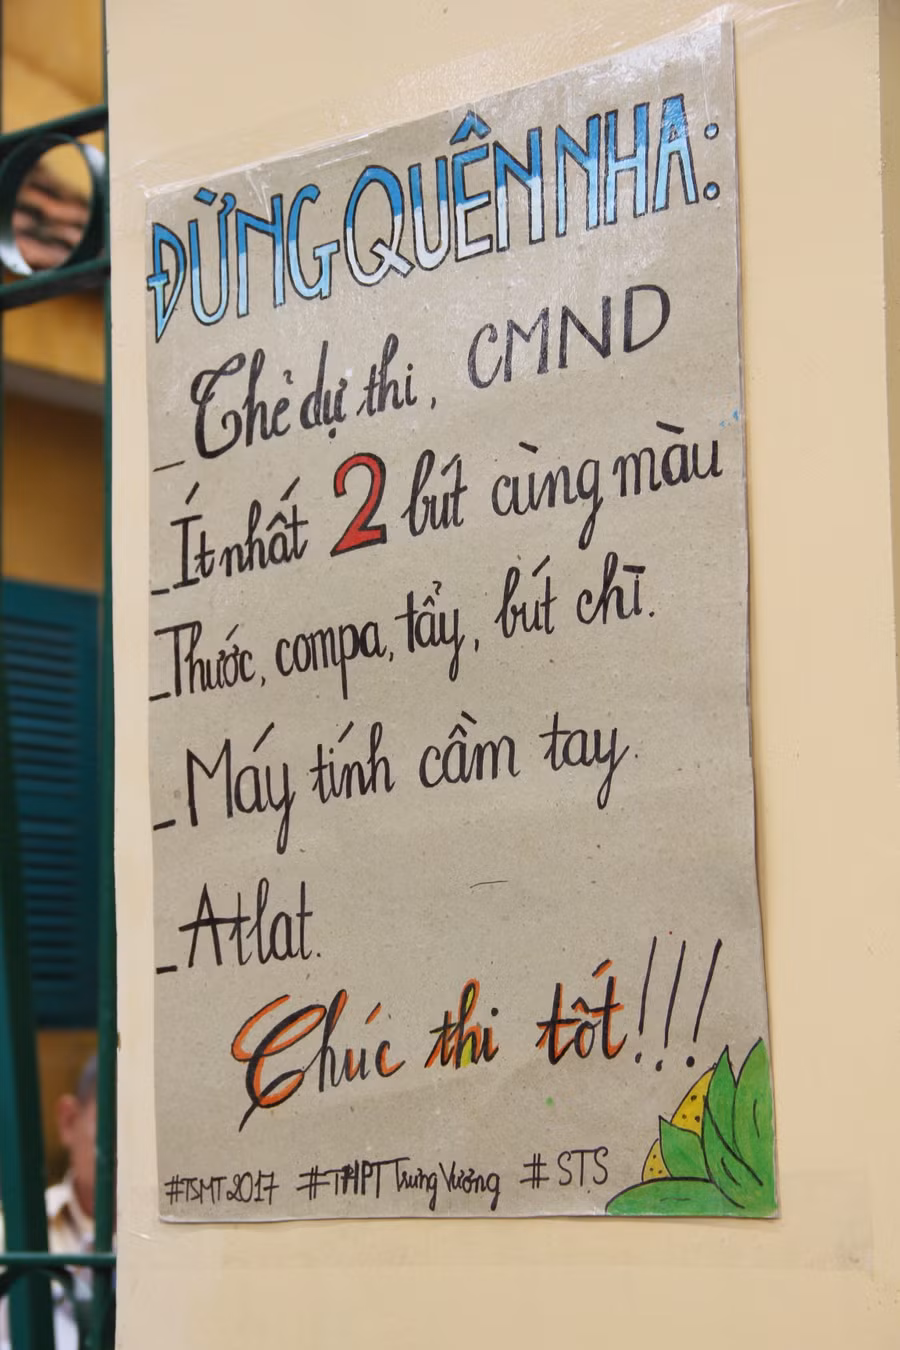 ĐỪNG QUÊN NHA:
_Thẻ dự thi, CMND
_Ít nhất 2 bút cùng màu
_Thước, compa, tẩy, bút chì.
_Máy tính cầm tay.
_Atlat.
Chúc thi tốt!!!
#TSMT2017 #THPTTrưng Vương #STS